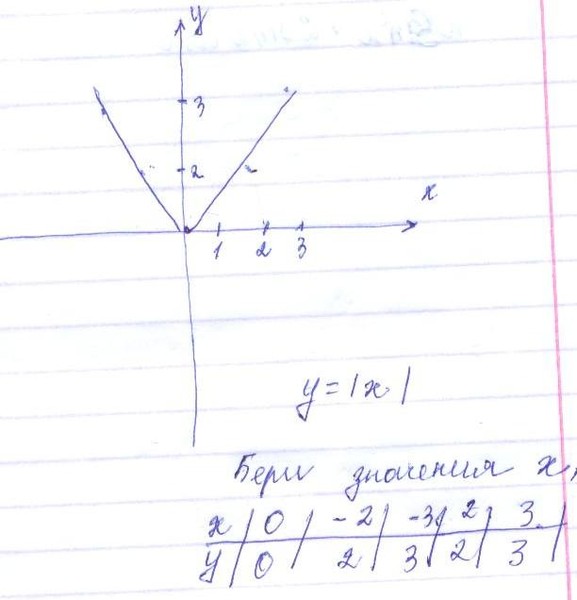 y
3
2
x
1 2 3
y = |x|
Бери значения x,
x | 0 | -2 | -3 | 2 | 3 |
y | 0 | 2 | 3 | 2 | 3 |